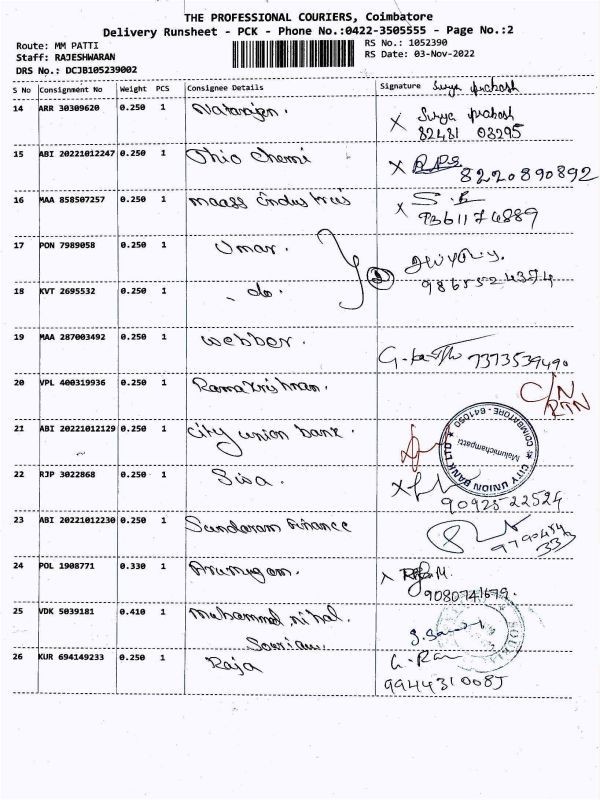 THE PROFESSIONAL COURIERS, Coimbatore
Delivery Runsheet - PCK - Phone No.:0422-3505555 - Page No.:2
Route: MM PATTI
RS No.: 1052390
Staff: RAJESHWARAN
RS Date: 03-Nov-2022
DRS No.: DCJB105239002
S No Consignment No Weight PCS Consignee Details Signature Surya prakash
14 ARR 30309620 0.250 1 Natarajen. X Surya prakash
82481 03295
15 ABI 20221012247 0.250 1 Ohio Chemi X
8220890892
16 MAA 858507257 0.250 1 maass Industries X S.
9361174889
17 PON 7989058 0.250 1 Umar.
9865524374
18 KVT 2695532 0.250 1 - do.
19 MAA 287003492 0.250 1 webber. 7373539490
20 VPL 400319936 0.250 1 Ramakrishnan. C/N
RTN
21 ABI 20221012129 0.250 1 City union bank.
★ CITY UNION BANK LTD ★ COIMBATORE - 641050
Malumichampatti
22 RJP 3022868 0.250 1 Siva. X
9092522524
23 ABI 20221012230 0.250 1 Sundaram Finance
9790484
333
24 POL 1908771 0.330 1 Arumugam. X
9080741679.
25 VDK 5039181 0.410 1 Muhammed nihal.
26 KUR 694149233 0.250 1 Raja
9944310085